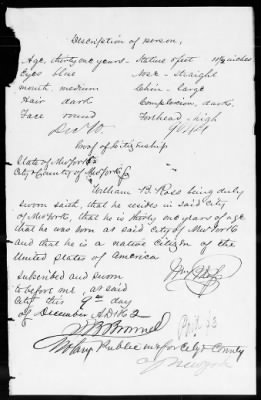 Description of person.
Age, thirty one years - Stature 5 feet 11 1/2 inches
Eyes blue Nose - straight
mouth, medium Chin - large
Hair dark Complexion, dark.
Face round Forhead - high
Dec 10.
Proof of Citizenship
State of New York
City & County of New York
William B. Ross being duly
sworn saith, that he resides in said City
of New York, that he is thirty one years of age
that he was born at said City of New York
and that he is a native Citizen of the
United States of America
Subscribed and sworn
to before me, at said
City this 9th day
of December A.D. 1862
Notary Public in & for City & County
New York